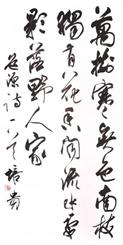 萬樹寒無色南枝
獨有花香聞流水處
影落野人家
道源詩一首